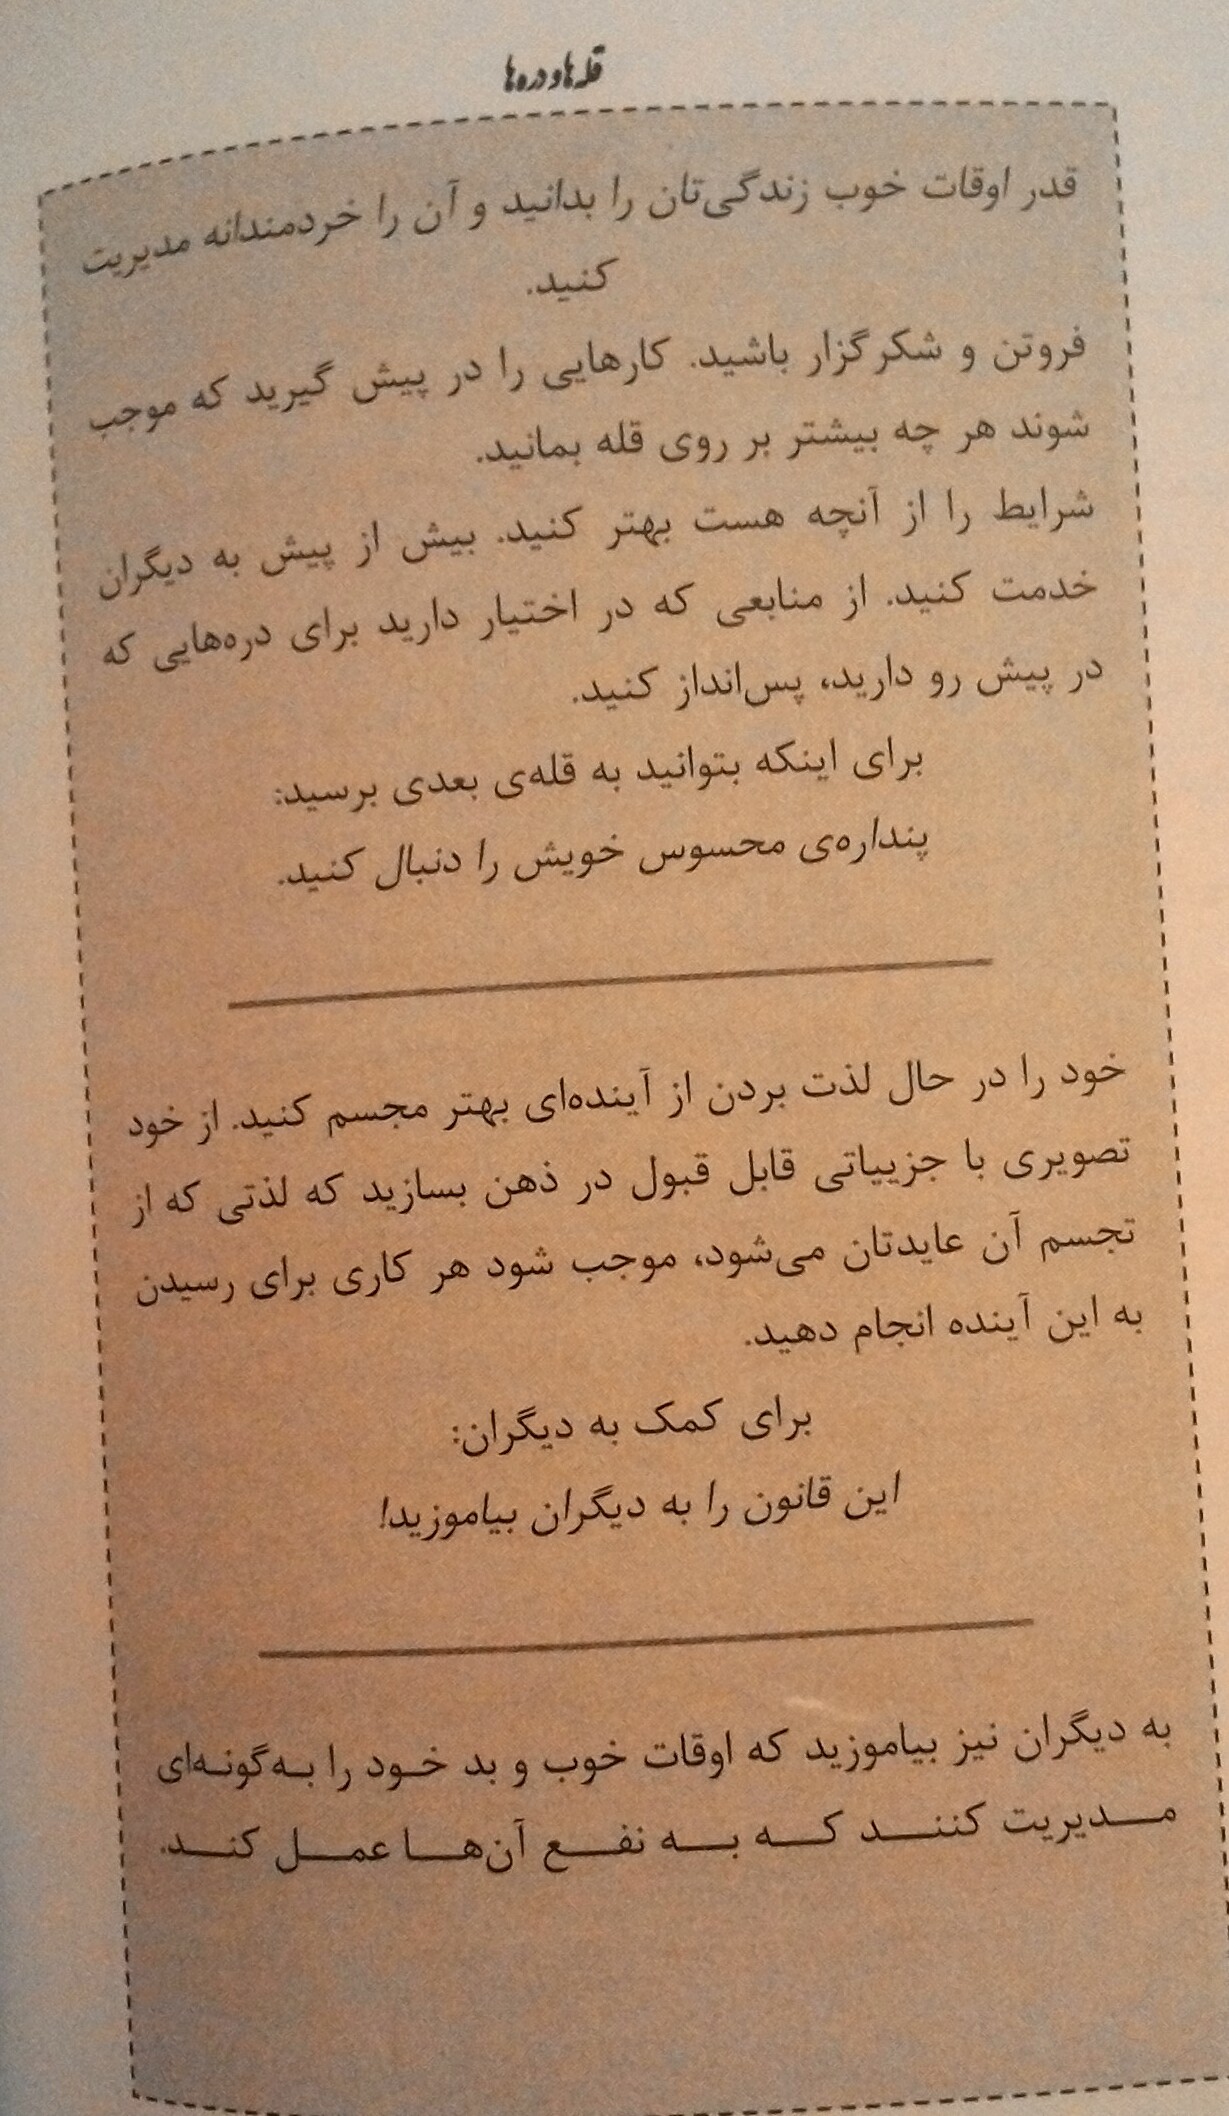 قله‌ها و دره‌ها
قدر اوقات خوب زندگی‌تان را بدانید و آن را خردمندانه مدیریت
کنید.
فروتن و شکرگزار باشید. کارهایی را در پیش گیرید که موجب
شوند هر چه بیشتر بر روی قله بمانید.
شرایط را از آنچه هست بهتر کنید. بیش از پیش به دیگران
خدمت کنید. از منابعی که در اختیار دارید برای دره‌هایی که
در پیش رو دارید، پس‌انداز کنید.
برای اینکه بتوانید به قله‌ی بعدی برسید:
پنداره‌ی محسوس خویش را دنبال کنید.
خود را در حال لذت بردن از آینده‌ای بهتر مجسم کنید. از خود
تصویری با جزییاتی قابل قبول در ذهن بسازید که لذتی که از
تجسم آن عایدتان می‌شود، موجب شود هر کاری برای رسیدن
به این آینده انجام دهید.
برای کمک به دیگران:
این قانون را به دیگران بیاموزید!
به دیگران نیز بیاموزید که اوقات خوب و بد خود را به‌گونه‌ای
مدیریت کنند که به نفع آن‌ها عمل کند.